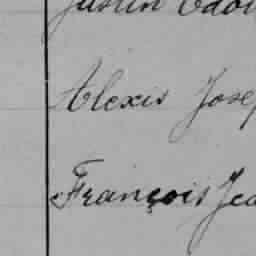 Justin Edou
Alexis Josep
François Jea